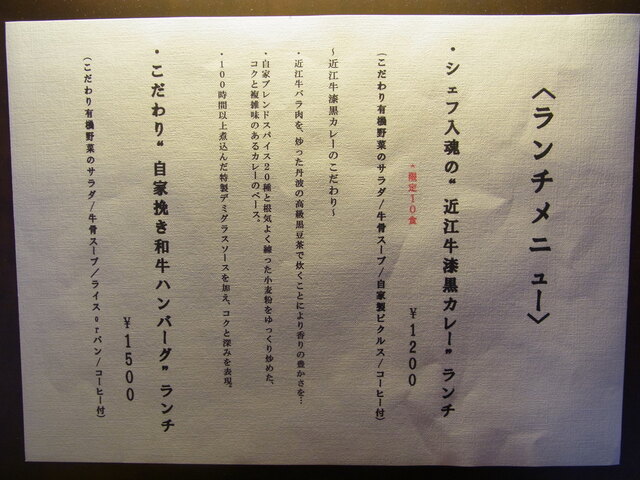 〈ランチメニュー〉
・シェフ入魂の“近江牛漆黒カレー”ランチ
*限定10食
¥1200
(こだわり有機野菜のサラダ/牛骨スープ/自家製ピクルス/コーヒー付)
〜近江牛漆黒カレーのこだわり〜
・近江牛バラ肉を、炒った丹波の高級黒豆茶で炊くことにより香りの豊かさを…
・自家ブレンドスパイス20種と根気よく練った小麦粉をゆっくり炒めた、
コクと複雑味のあるカレーのベース。
・100時間以上煮込んだ特製デミグラスソースを加え、コクと深みを表現。
・こだわり“自家挽き和牛ハンバーグ”ランチ
¥1500
(こだわり有機野菜のサラダ/牛骨スープ/ライスorパン/コーヒー付)